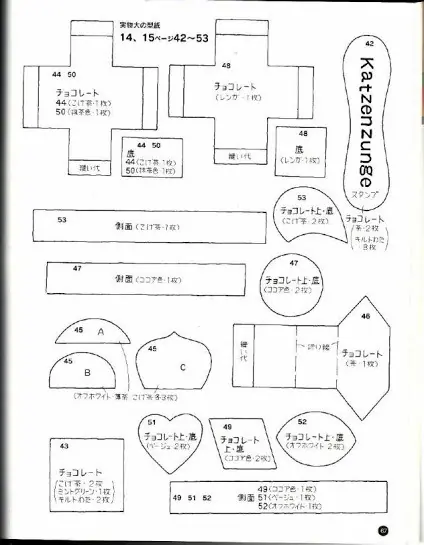 実物大の型紙
14、15ページ42〜53
44 50
チョコレート
44(こげ茶・1枚)
50(抹茶色・1枚)
縫い代
48
チョコレート
(レンガ・1枚)
縫い代
44 50
底
44(こげ茶・1枚)
50(抹茶色・1枚)
48
底
(レンガ・1枚)
42
Katzenzunge
スタンプ
チョコレート
(茶・2枚
キルトわた・
3枚)
53
側面(こげ茶・1枚)
53
チョコレート上・底
(こげ茶・2枚)
47
側面(ココア色・1枚)
47
チョコレート上・底
(ココア色・2枚)
45 A
45
B
45
C
(オフホワイト・薄茶・こげ茶・各3枚)
縫い代
折り線
46
チョコレート
(茶・1枚)
51
チョコレート上・底
(ベージュ・2枚)
49
チョコレート
上・底
(ココア色・2枚)
52
チョコレート上・底
(オフホワイト・2枚)
43
チョコレート
(こげ茶・2枚
ミントグリーン・1枚
キルトわた・2枚)
49 51 52
側面
49(ココア色・1枚)
51(ベージュ・1枚)
52(オフホワイト・1枚)
67